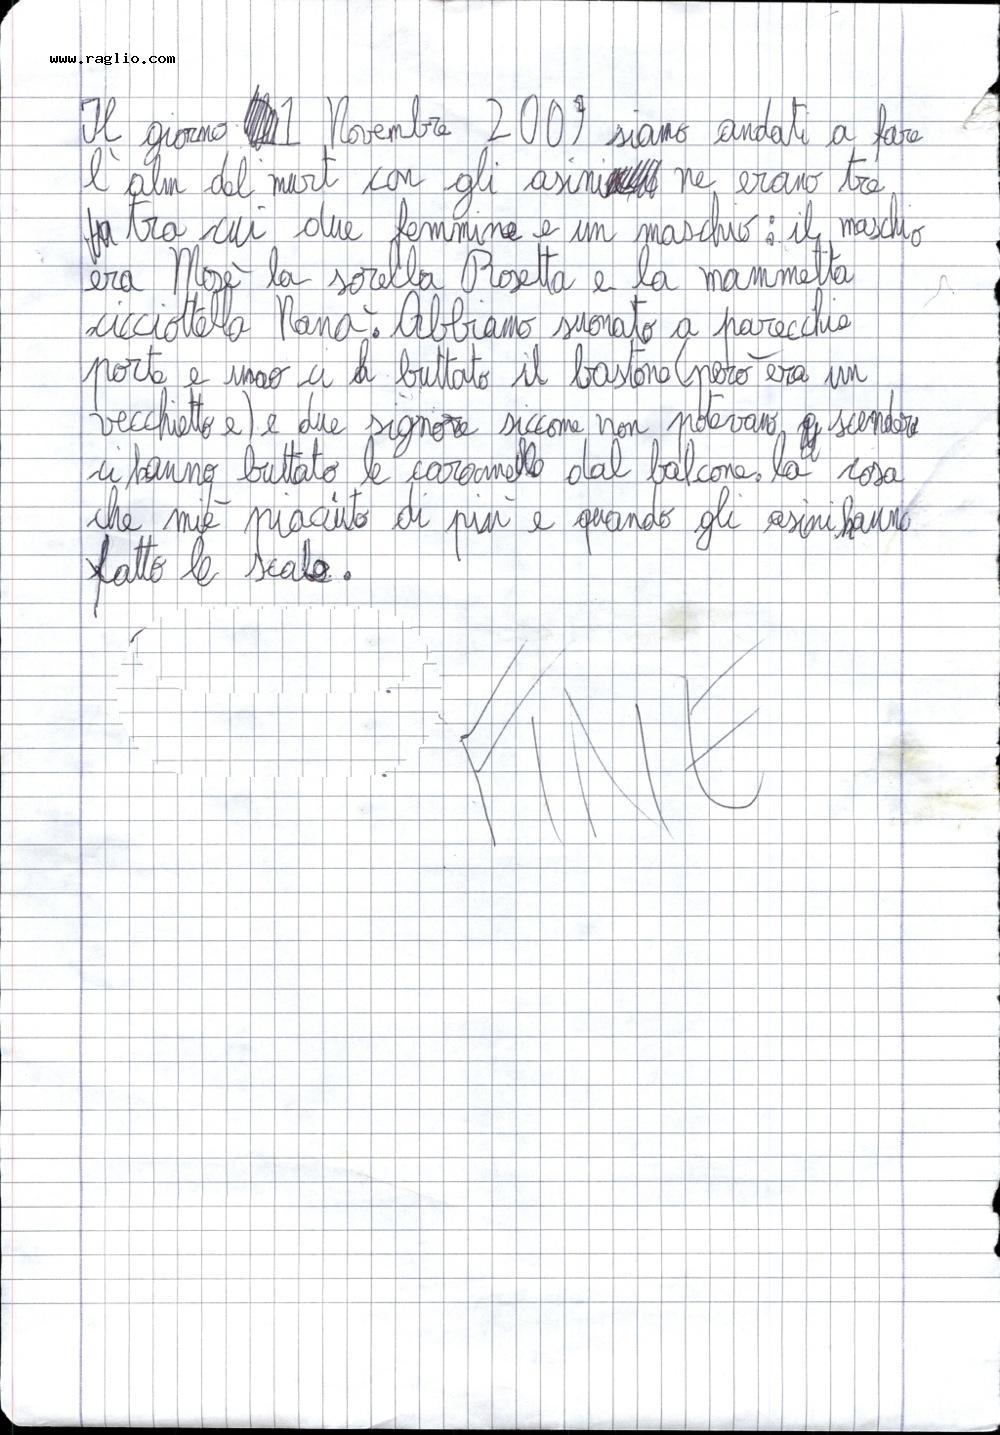 www.raglio.com
Il giorno 1 Novembre 2009 siamo andati a fare
l'alm del murt con gli asini ne erano tre
tra cui due femmine e un maschio: il maschio
era Mosè la sorella Rosetta e la mammetta
cicciottella Nanà. Abbiamo suonato a parecchie
porte e uno ci h buttato il bastone (però era un
vecchietto e) e due signore siccome non potevano scendere
ci hanno buttato le caramelle dal balcone. la cosa
che miè piaciuto di più è quando gli asini hanno
fatto le scale.
FINE